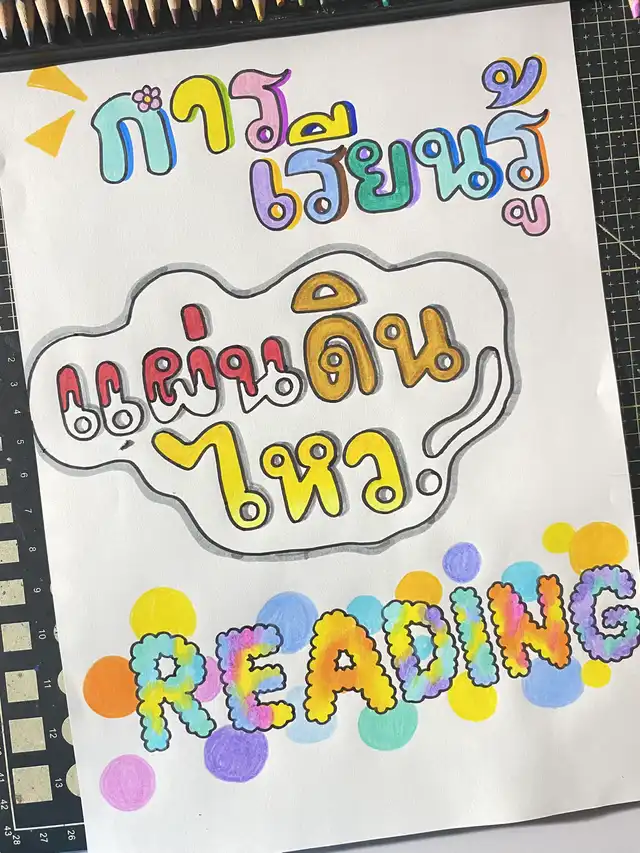 การ
เรียนรู้
แผ่นดิน
ไหว
READING